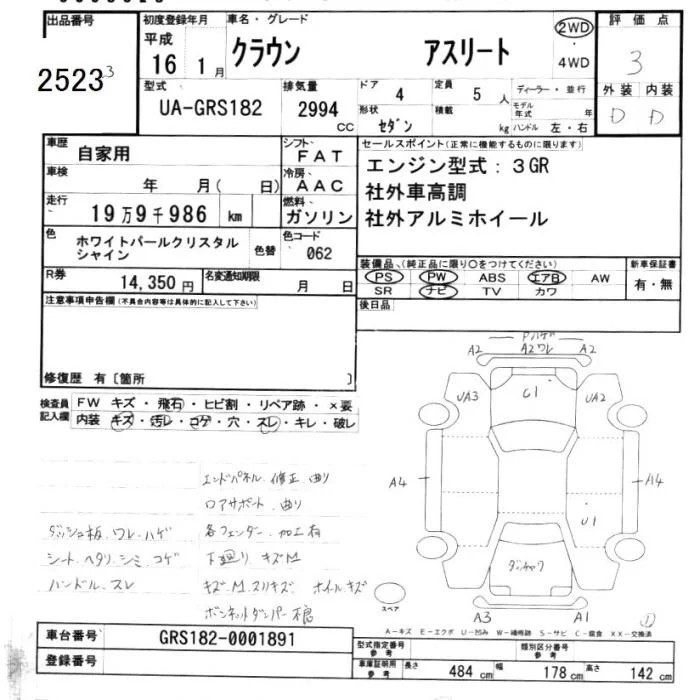 出品番号 初度登録年月 車名・グレード 2WD 評価点
平成 ・
2523 3 16 1月 クラウン アスリート 4WD 3
型式 排気量 ドア 4 定員 5 人 ディーラー・並行 外装 内装
UA-GRS182 2994 CC 形状 セダン 積載 kg モデル年式 年 D D
ハンドル 左・右
車歴 自家用 シフト FAT セールスポイント(正常に機能するものに限ります)
車検 年 月( 日) 冷房 AAC エンジン型式:3GR
社外車高調
走行 19万9千986 km 燃料 ガソリン 社外アルミホイール
色 ホワイトパールクリスタル 色替 色コード
シャイン 062
装備品、(純正品に限り○をつけてください) 新車保証書
R券 14,350円 名変通知期限 月 日 PS PW ABS エアB AW 有・無
SR ナビ TV カワ
注意事項申告欄(不具合内容等は具体的に記入して下さい) 後日品
修復歴 有〔箇所 〕
検査員 FW キズ・飛石・ヒビ割・リペア跡・×要
記入欄 内装 キズ・汚レ・コゲ・穴・スレ・キレ・破レ
Pハゲ
A2 A2ワレ A2
UA3 U1 UA2
A4 A14
U1
ダッシュ板、ワレ、ハゲ
シート、ヘタリ、シミ、コゲ
ハンドル、スレ
エンドパネル 修正 曲り
ロアサポート、曲り
各フェンダー、加工有
下廻り キズM
キズM、スリキズ ホイールキズ
ボンネットダンパー
スペア
A3 A1 ①
A-キズ E-エクボ U-凹み W-補修跡 S-サビ C-腐食 XX-交換済
車台番号 GRS182-0001891
登録番号
型式指定番号 参考 類別区分番号 参考
車庫証明用 参考 長さ 484 cm 幅 178 cm 高さ 142 cm